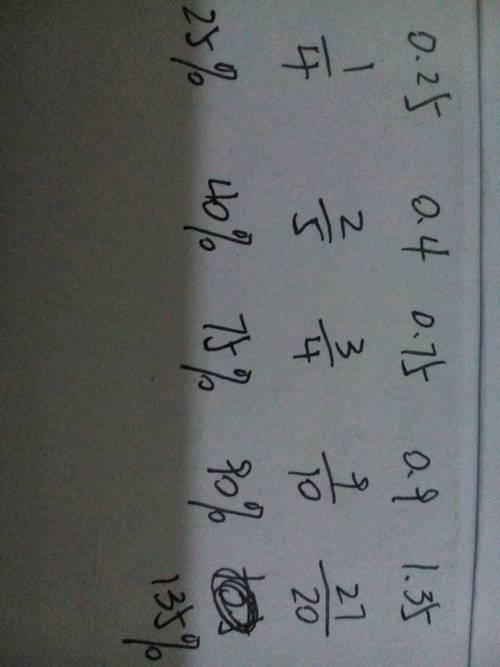 0.25 0.4 0.75 0.9 1.35
1/4 2/5 3/4 9/10 27/20
25% 40% 75% 90%
135%